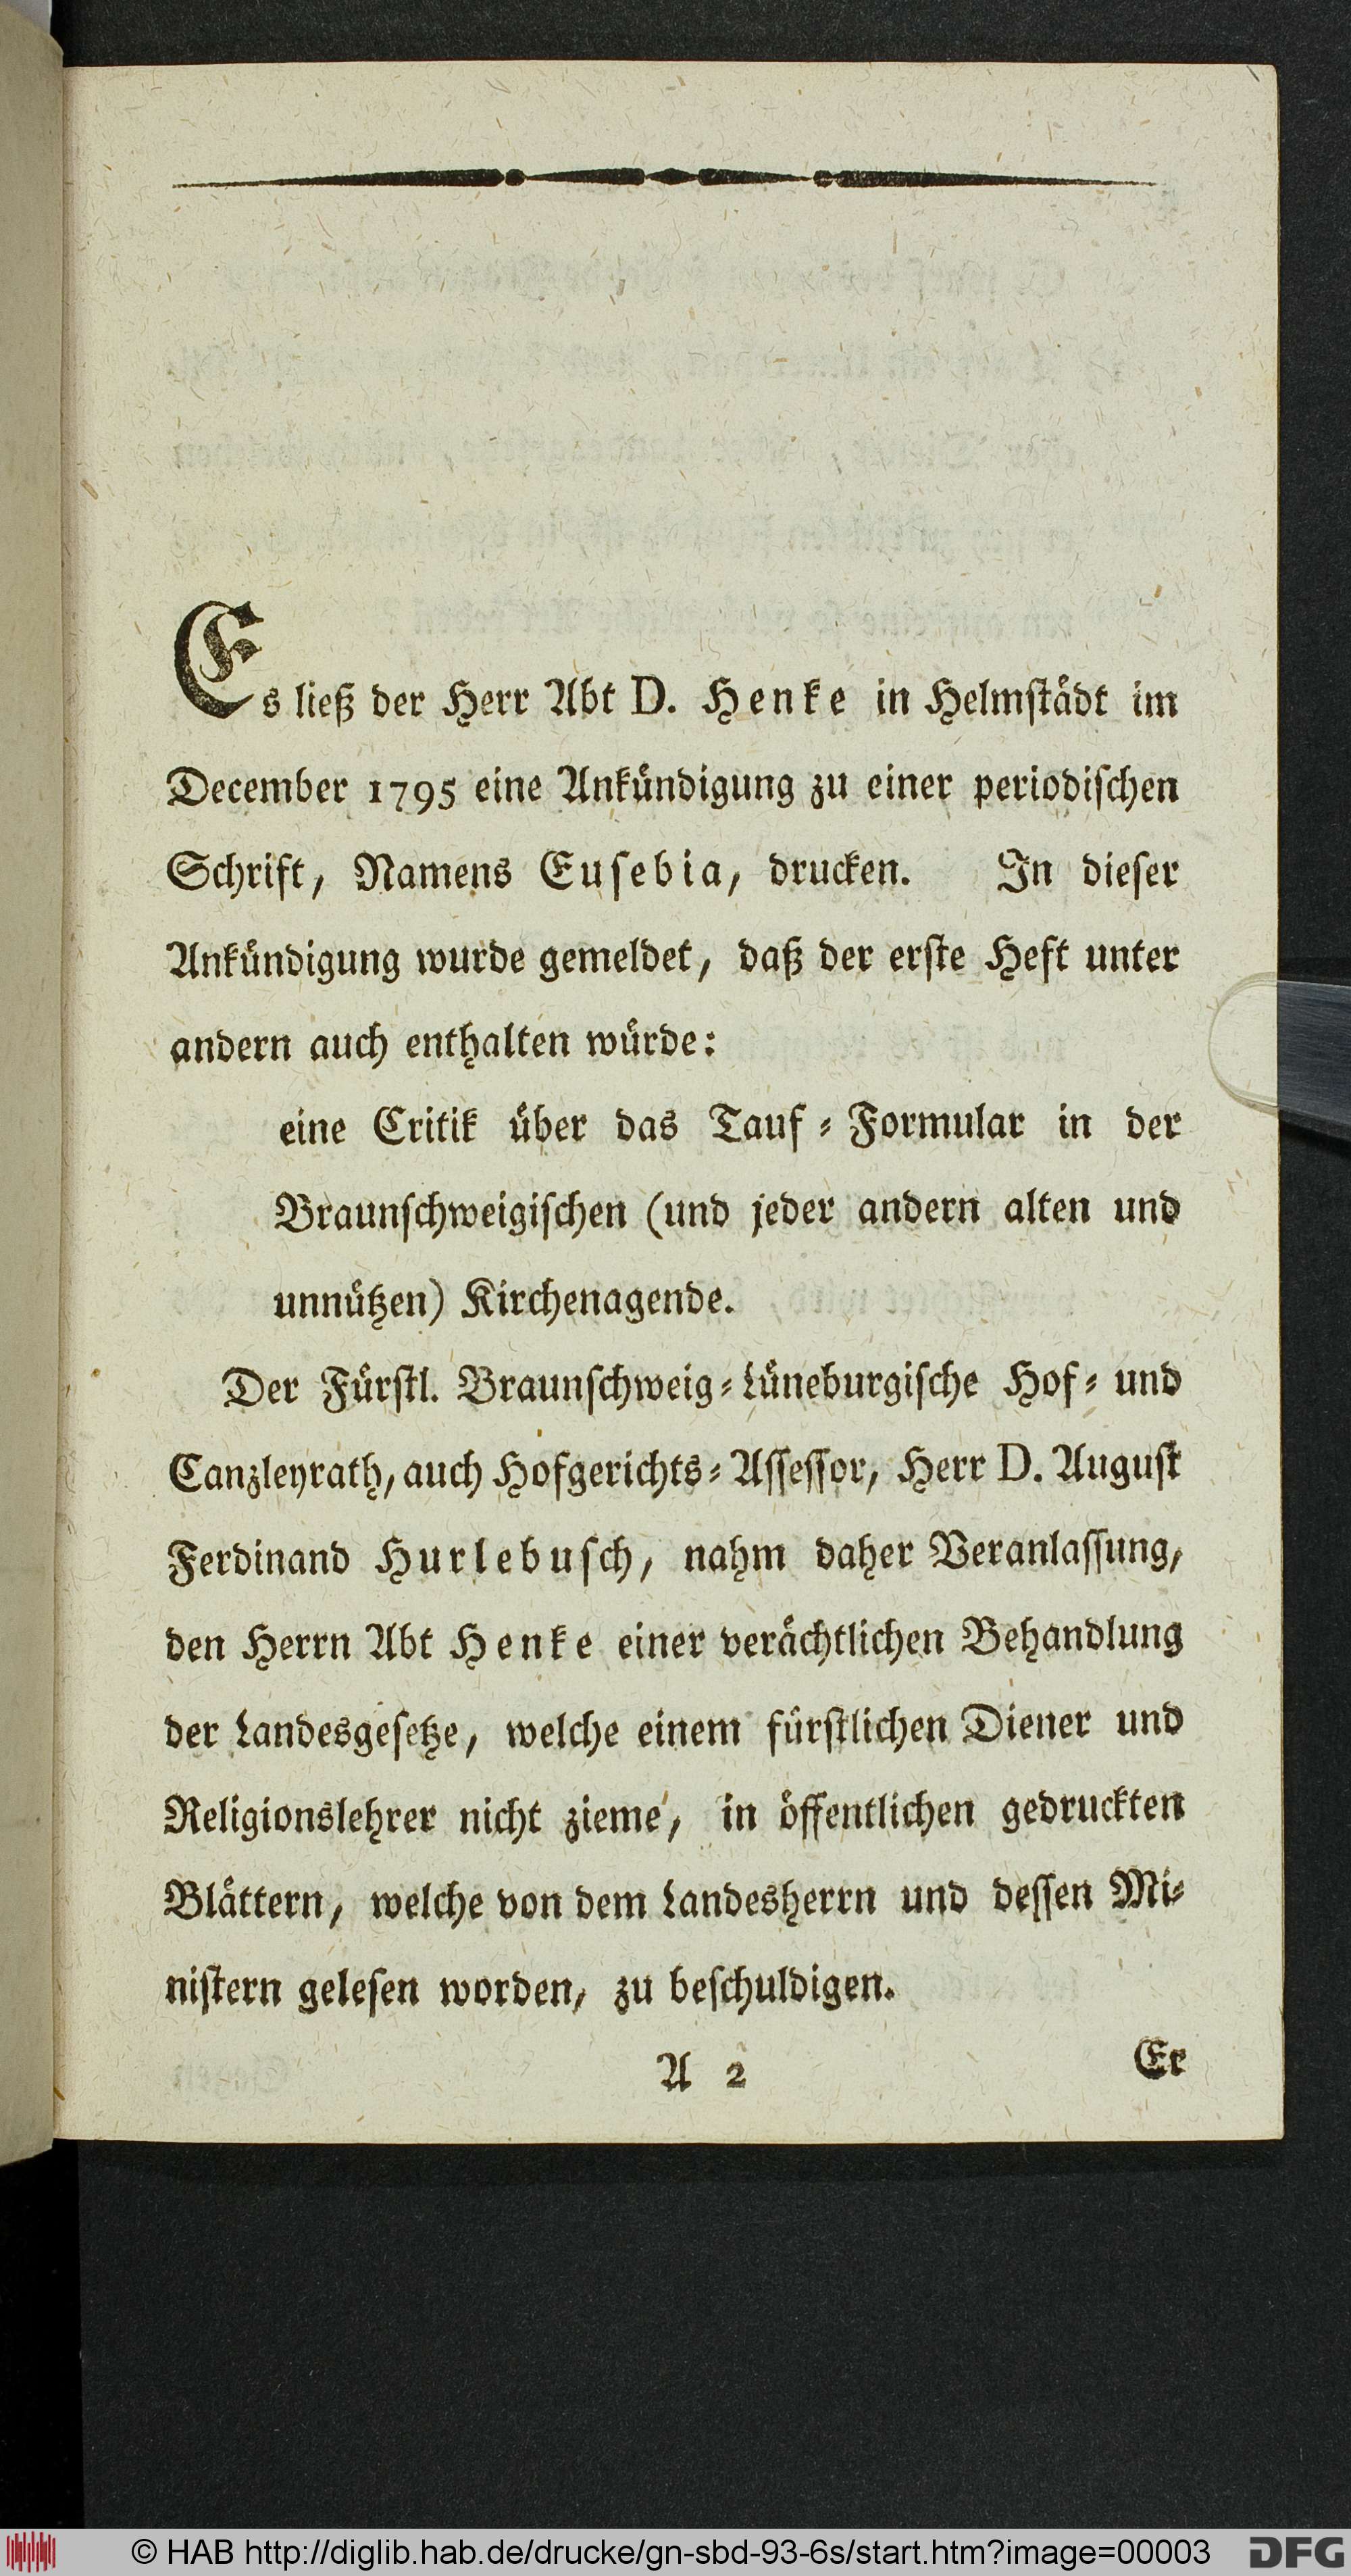 Es ließ der Herr Abt D. Henke in Helmstådt im
December 1795 eine Ankůndigung zu einer periodischen
Schrift, Namens Eusebia, drucken. In dieser
Ankůndigung wurde gemeldet, daß der erste Heft unter
andern auch enthalten wůrde:
eine Critik ůber das Tauf⸗Formular in der
Braunschweigischen (und jeder andern alten und
unnůtzen) Kirchenagende.
Der Fůrstl. Braunschweig⸗Lůneburgische Hof⸗ und
Canzleyrath, auch Hofgerichts⸗Assessor, Herr D. August
Ferdinand Hurlebusch, nahm daher Veranlassung,
den Herrn Abt Henke einer veråchtlichen Behandlung
der Landesgesetze, welche einem fůrstlichen Diener und
Religionslehrer nicht zieme, in öffentlichen gedruckten
Blåttern, welche von dem Landesherrn und dessen Mi⸗
nistern gelesen worden, zu beschuldigen.
A 2 Er
© HAB http://diglib.hab.de/drucke/gn-sbd-93-6s/start.htm?image=00003 DFG